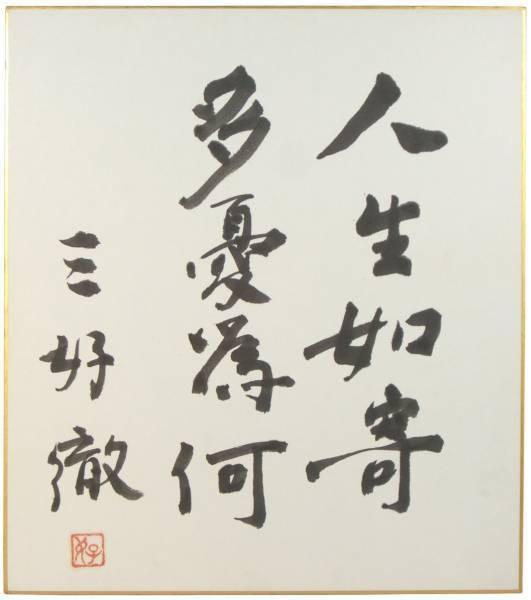 人生如寄
多憂為何
三好徹
好